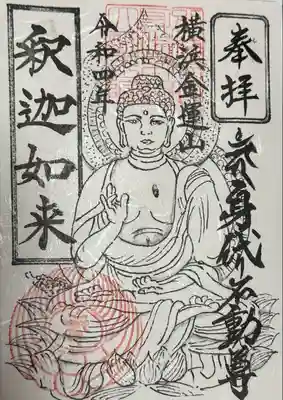 奉拝
身代不動尊
横浜金運山
令和四年
釈迦如来